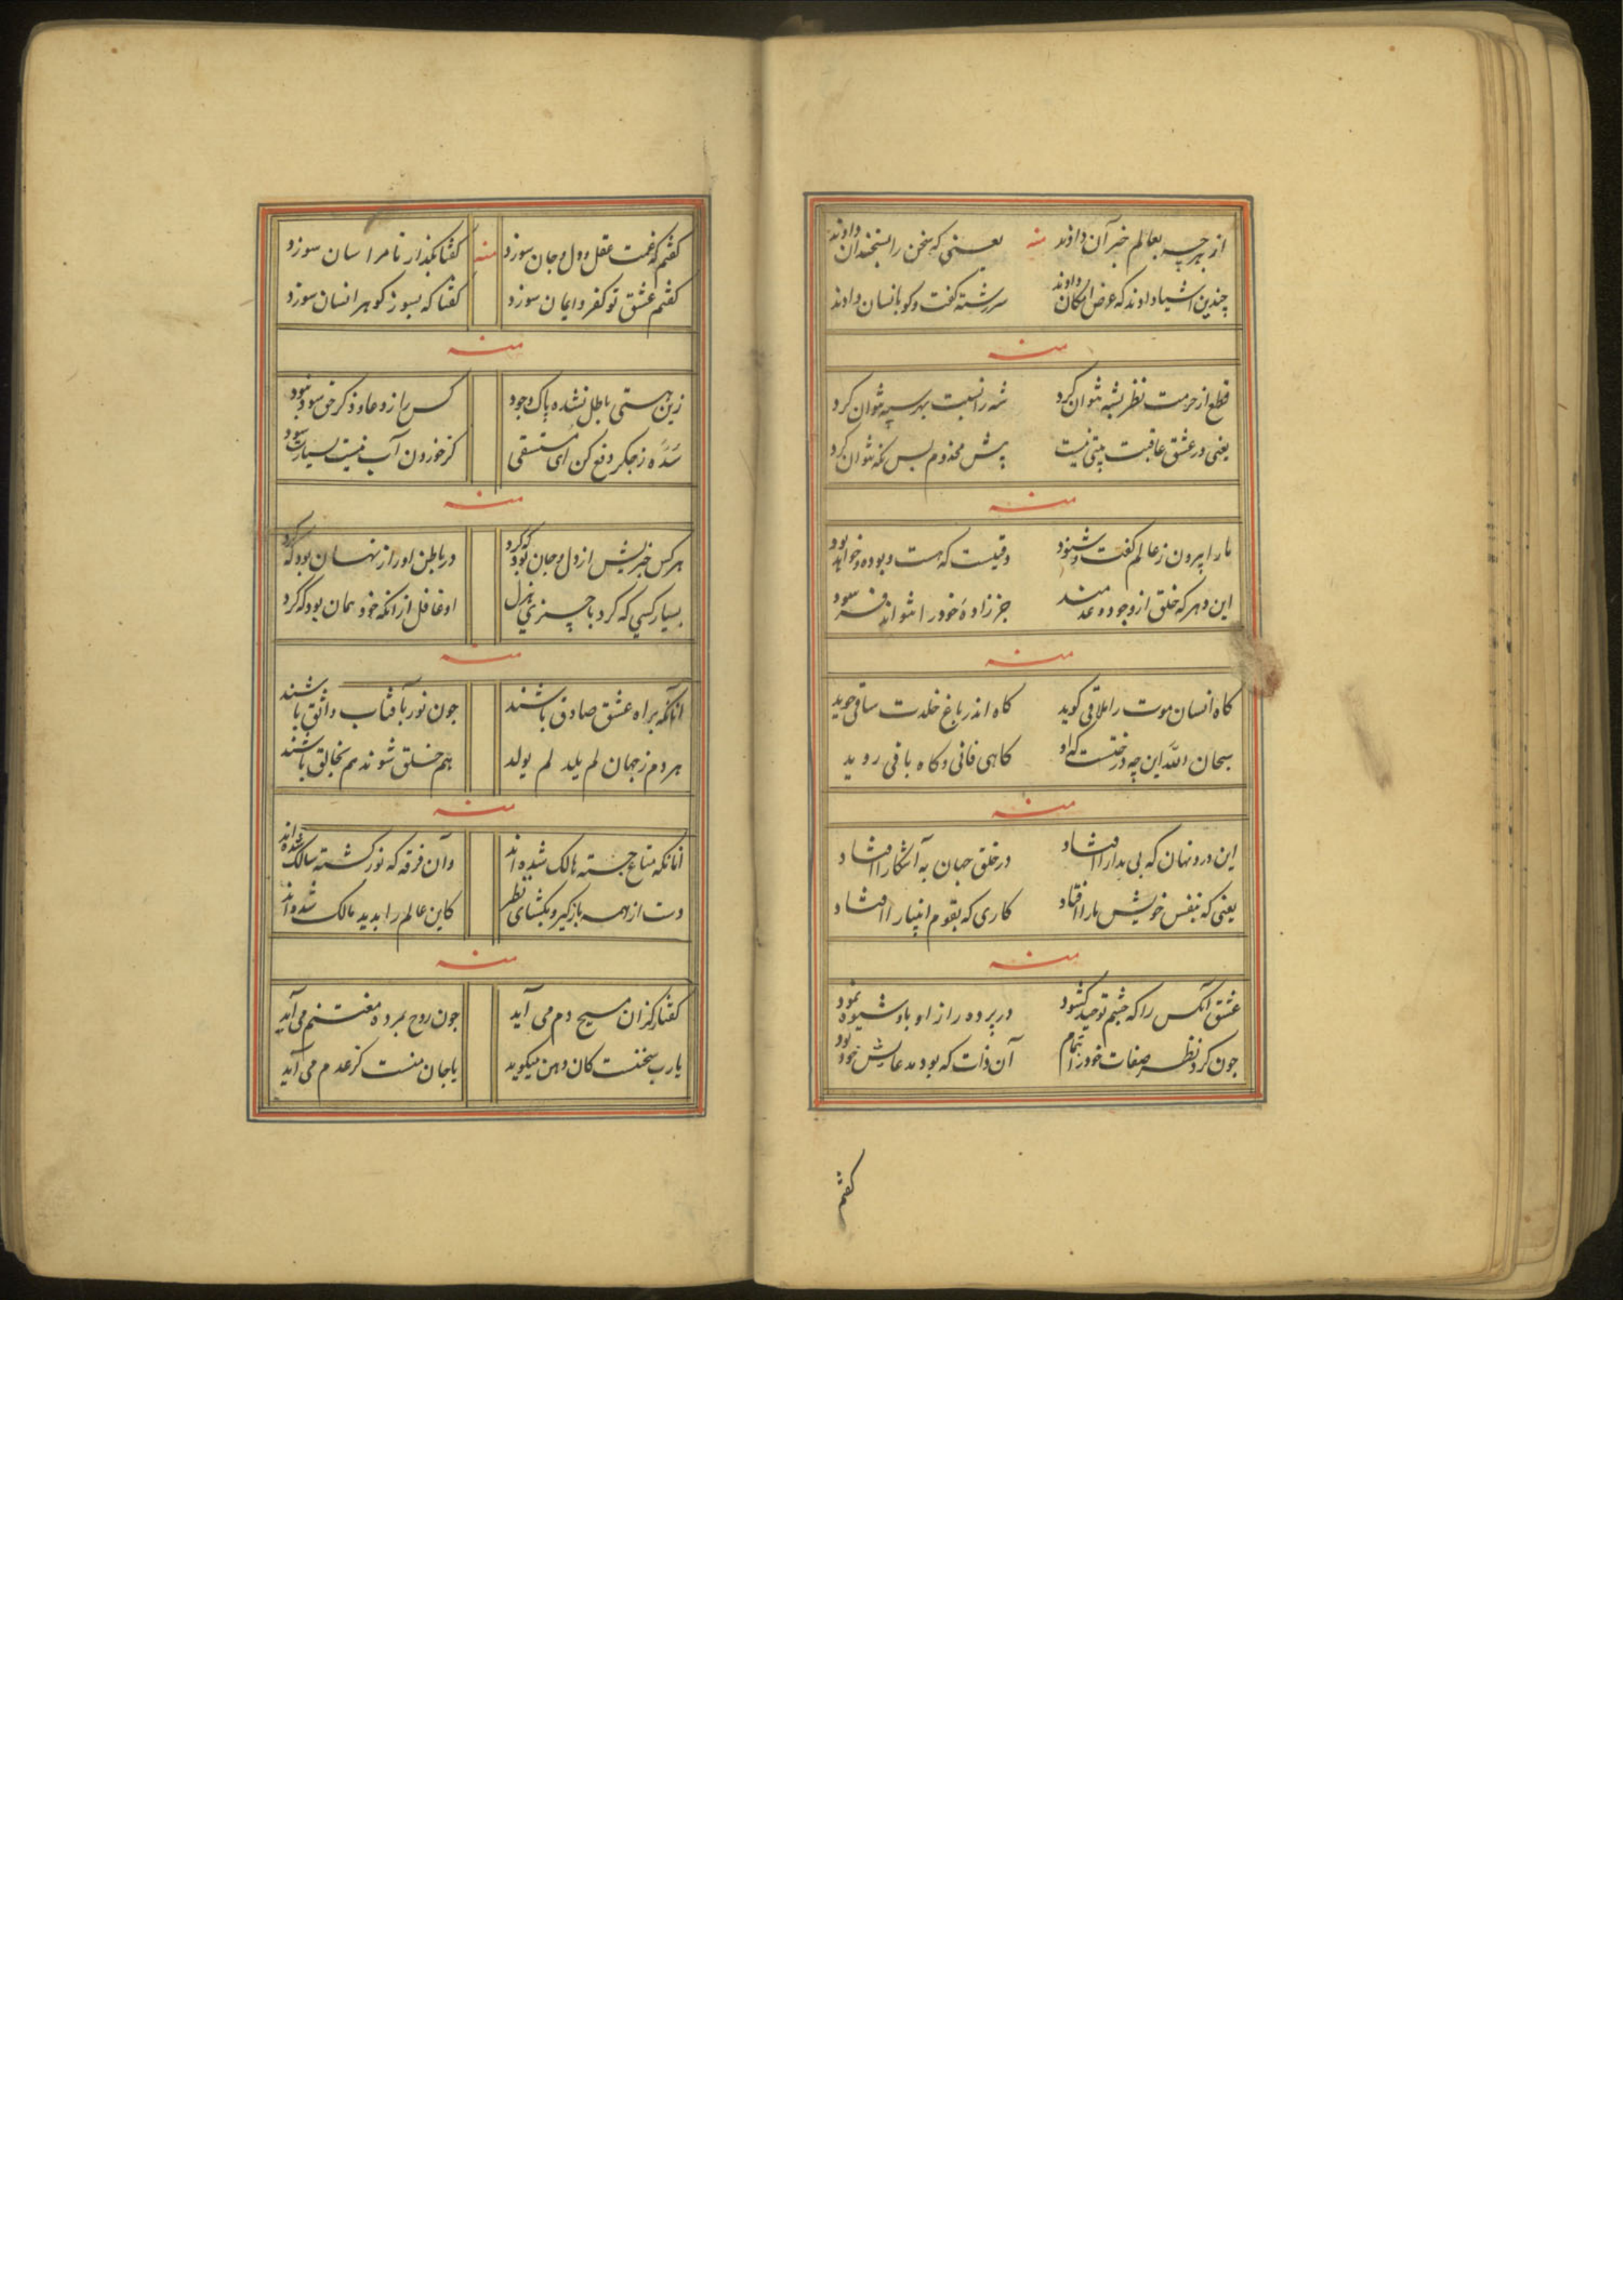 از هر چه بعالم خبر آن دادند منه یعنی که سخن را بسخندان دادند
چندین اشیا دادند که عرض امکان دادند سررشته گفت و کو بانسان دادند
منه
قطع از حرمت نظر بشبه نتوان کرد شه را نسبت بهر سپه نتوان کرد
یعنی در عشق عاقبت بینی نیست پیش مخدوم پس نکه نتوان کرد
منه
ما را بیرون ز عالم گفت و شنود وقتیست که هست و بوده و خواهد بود
این دهر که خلق از وجود و عدمند جز زاده خود را نتواند فرسود
منه
کاه انسان موت را ملاقی کوید کاه اندر باغ خلدت ساقی جوید
سبحان الله این چه درختست که او کاهی فانی و کاه باقی روید
منه
این درد نهان که بی مدارا افتاد در خلق جهان به آشکارا افتاد
یعنی که بنفس خویش ما را افتاد کاری که بقوم انبیا را افتاد
منه
عشق آنکس را که چشم توحید کشود در پرده راز او باو شیوه نمود
چون کرد نظر صفات خود را بتمام آن ذات که بود مدعایش خود بود
کفتم
کفتم که غمت عقل و دل و جان سوزد منه کفتا بکذار تا مرا سان سوزد
کفتم عشق تو کفر و ایمان سوزد کفتا که بسوز کوهر انسان سوزد
منه
زین هستی باطل نشده پاک وجود کس را ز دعا و ذکر حق سود نبود
سده ز جکر دفع کن ای مستسقی کز خوردن آب نیست بسیارت سود
منه
هر کس خبریش از دل و جان بود که کرد در باطن او راز نهان بود که کرد
بسیار کسی که کرد با چیزی هزل او غافل از آنکه خود همان بود که کرد
منه
آنانکه براه عشق صادق باشند چون نور بآفتاب واثق باشند
هر دم ز جهان لم یلد لم یولد هم خلق شوند هم بخالق باشند
منه
آنانکه متاع جسته هالک شده‌اند وآن فرقه که نور کشته سالک شده‌اند
دست از همه باز کیر و بکشای نظر کاین عالم را بدید مالک شده‌اند
منه
کفتار کزان مسیح دم می آید چون روح بمرده مغتنم می آید
یا رب سخنست کان دهن میکوید یا جان منست کز عدم می آید